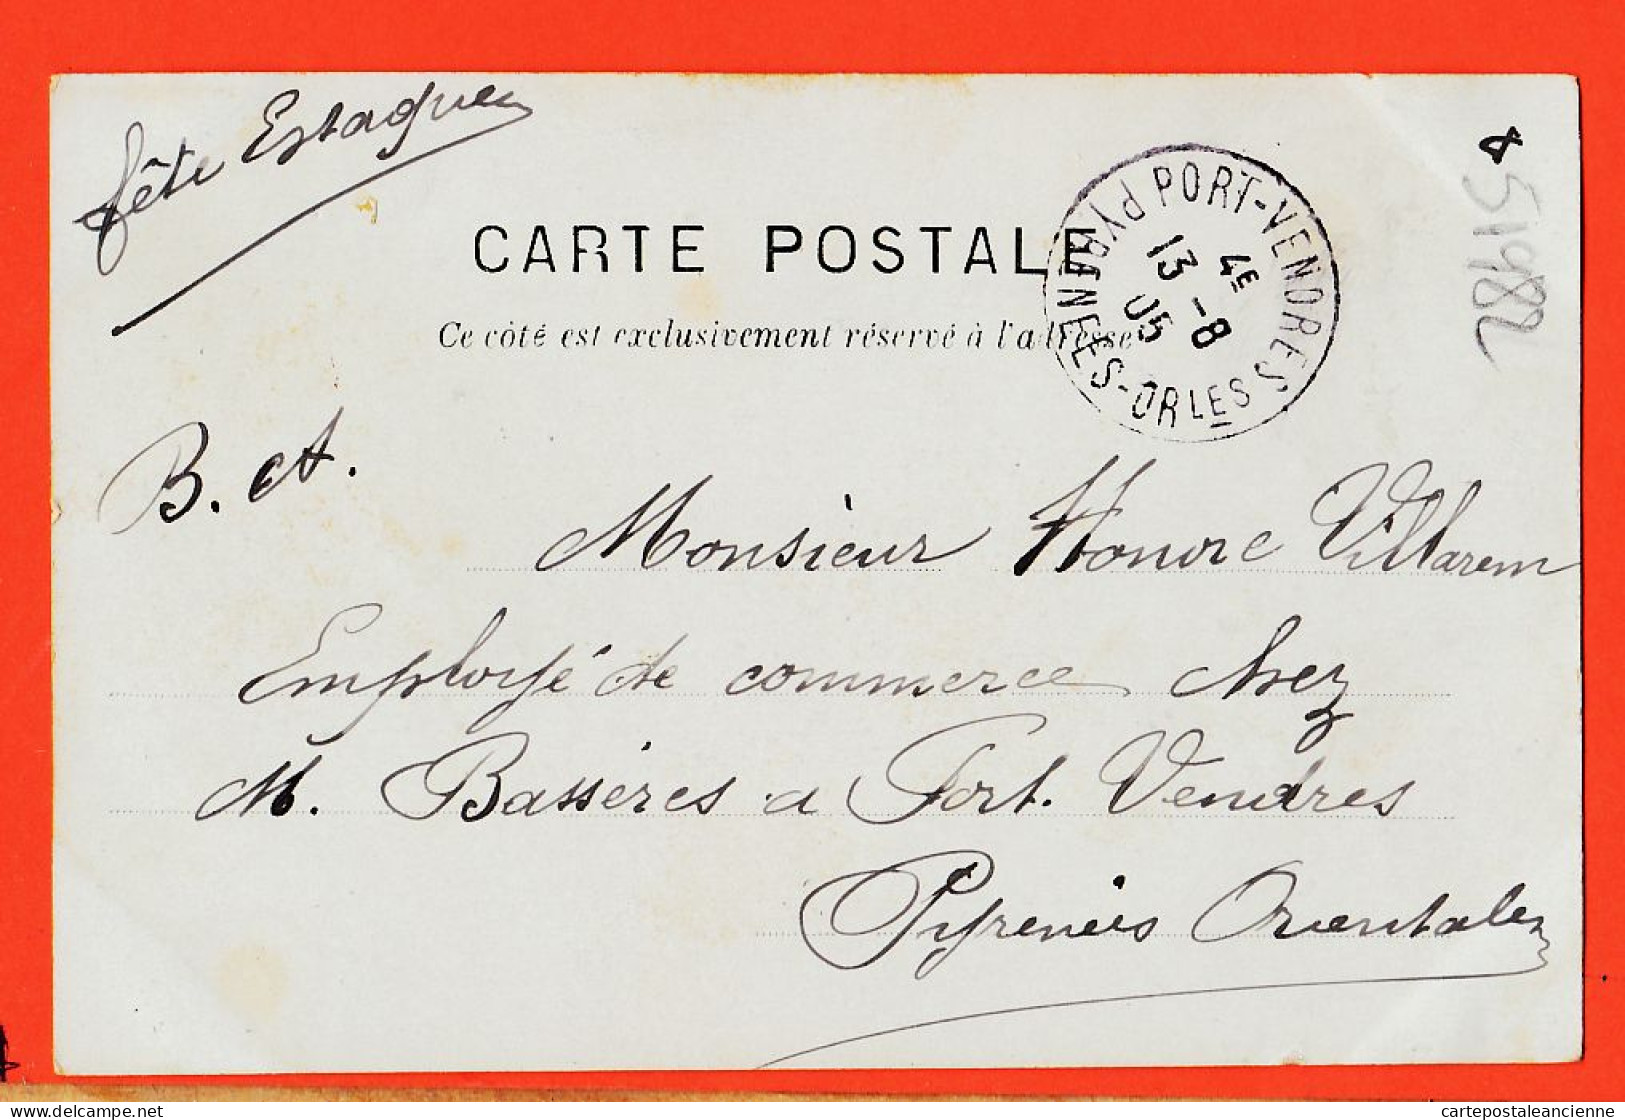 fête Estaque
CARTE POSTALE
Ce côté est exclusivement réservé à l'adresse
PORT-VENDRES
4E
13 -8
05
PYRÉNÉES-ORLES
51982
B. et A.
Monsieur Honoré Villarem
Employé de commerce chez
M. Bassères a Port. Vendres
Pyrénées Orientales
www.cartepostaleancienne.com
cartepostaleancienne